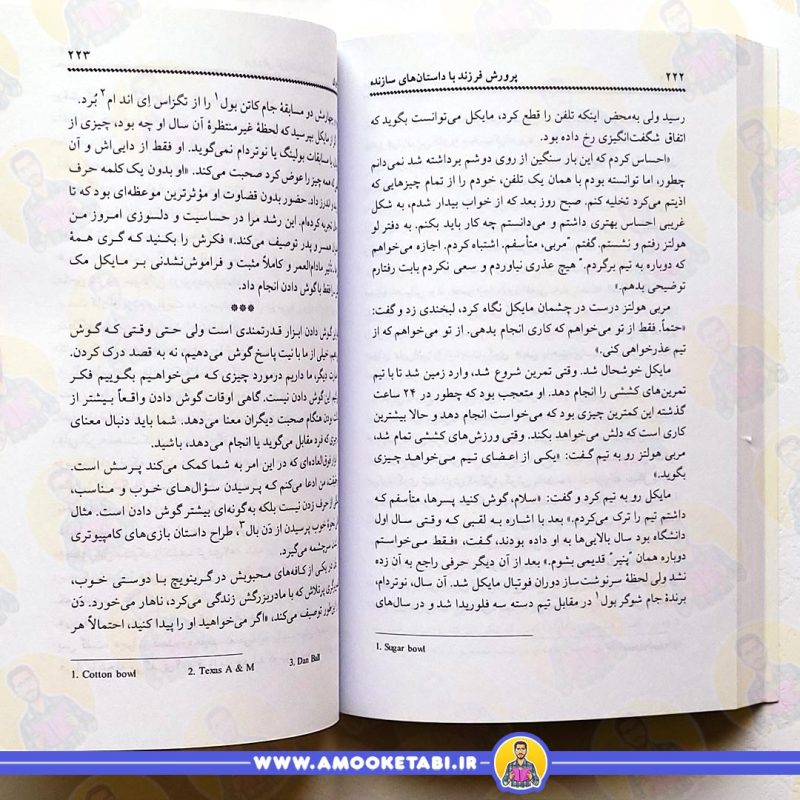 ۲۲۲
پرورش فرزند با داستان‌های سازنده
رسید ولی به‌محض اینکه تلفن را قطع کرد، مایکل می‌توانست بگوید که
اتفاق شگفت‌انگیزی رخ داده بود.
«احساس کردم که این بار سنگین از روی دوشم برداشته شد. نمی‌دانم
چطور، اما توانسته بودم با همان یک تلفن، خودم را از تمام چیزهایی که
اذیتم می‌کرد تخلیه کنم. صبح روز بعد که از خواب بیدار شدم، به شکل
غریبی احساس بهتری داشتم و می‌دانستم چه کار باید بکنم. به دفتر لو
هولتز رفتم و نشستم. گفتم "مربی، متأسفم. اشتباه کردم. اجازه می‌خواهم
که دوباره به تیم برگردم." هیچ عذری نیاوردم و سعی نکردم بابت رفتارم
توضیحی بدهم.»
مربی هولتز درست در چشمان مایکل نگاه کرد، لبخندی زد و گفت:
«حتماً. فقط از تو می‌خواهم که کاری انجام بدهی. از تو می‌خواهم که از
تیم عذرخواهی کنی.»
مایکل خوشحال شد. وقتی تمرین شروع شد، وارد زمین شد تا با تیم
تمرین‌های کششی را انجام دهد. او متعجب بود که چطور در ۲۴ ساعت
گذشته این کمترین چیزی بود که می‌خواست انجام دهد و حالا بیشترین
کاری است که دلش می‌خواهد بکند. وقتی ورزش‌های کششی تمام شد،
مربی هولتز رو به تیم گفت: «یکی از اعضای تیم می‌خواهد چیزی
بگوید.»
مایکل رو به تیم کرد و گفت: «سلام، گوش کنید پسرها، متأسفم که
داشتم تیم را ترک می‌کردم.» بعد با اشاره به لقبی که وقتی سال اول
دانشگاه بود سال بالایی‌ها به او داده بودند، گفت، «فقط می‌خواستم
دوباره همان "پنیر" قدیمی بشوم.» بعد از آن دیگر حرفی راجع به آن زده
نشد ولی لحظهٔ سرنوشت‌ساز دوران فوتبال مایکل شد. آن سال، نوتردام،
برندهٔ جام شوگر بول۱ در مقابل تیم دسته سه فلوریدا شد و در سال‌های
1. Sugar bowl
۲۲۳
چهارمش دو مسابقهٔ جام کاتن بول۱ را از تگزاس اِی اند ام۲ بُرد.
از مایکل بپرسید که لحظهٔ غیرمنتظرهٔ آن سال او چه بود، چیزی از
مسابقات بولینگ یا نوتردام نمی‌گوید. او فقط از دایی‌اش و آن
همه چیز را عوض کرد صحبت می‌کند. «او بدون یک کلمه حرف
داد. حضور بدون قضاوت او مؤثرترین موعظه‌ای بود که تا
تجربه کرده‌ام. این رشد مرا در حساسیت و دلسوزی امروز من
همسر و پدر توصیف می‌کند.» فکرش را بکنید که گری همهٔ
تأثیر مادام‌العمر و کاملاً مثبت و فراموش‌نشدنی بر مایکل مک
فقط با گوش دادن انجام داد.
***
گوش دادن ابزار قدرتمندی است ولی حتی وقتی که گوش
خیلی از ما با نیت پاسخ گوش می‌دهیم، نه به قصد درک کردن.
دیگر، ما داریم درمورد چیزی که می‌خواهیم بگوییم فکر
این گوش دادن نیست. گاهی اوقات گوش دادن واقعاً بیشتر از
بودن هنگام صحبت دیگران معنا می‌دهد. شما باید دنبال معنای
که فرد مقابل می‌گوید یا انجام می‌دهد، باشید.
فوق‌العاده‌ای که در این امر به شما کمک می‌کند پرسش است.
من ادعا می‌کنم که پرسیدن سؤال‌های خوب و مناسب،
از حرف زدن نیست بلکه به‌گونه‌ای بیشتر گوش دادن است. مثال
خوب پرسیدن از دَن بال۳، طراح داستان بازی‌های کامپیوتری
سرچشمه می‌گیرد.
در یکی از کافه‌های محبوبش در گرینویچ با دوستی خوب،
پرتلاش که با مادربزرگش زندگی می‌کرد، ناهار می‌خورد. دَن
توصیف می‌کند، «اگر می‌خواهید او را پیدا کنید، احتمالاً هر
1. Cotton bowl 2. Texas A & M 3. Dan Ball
WWW.AMOOKETABI.IR